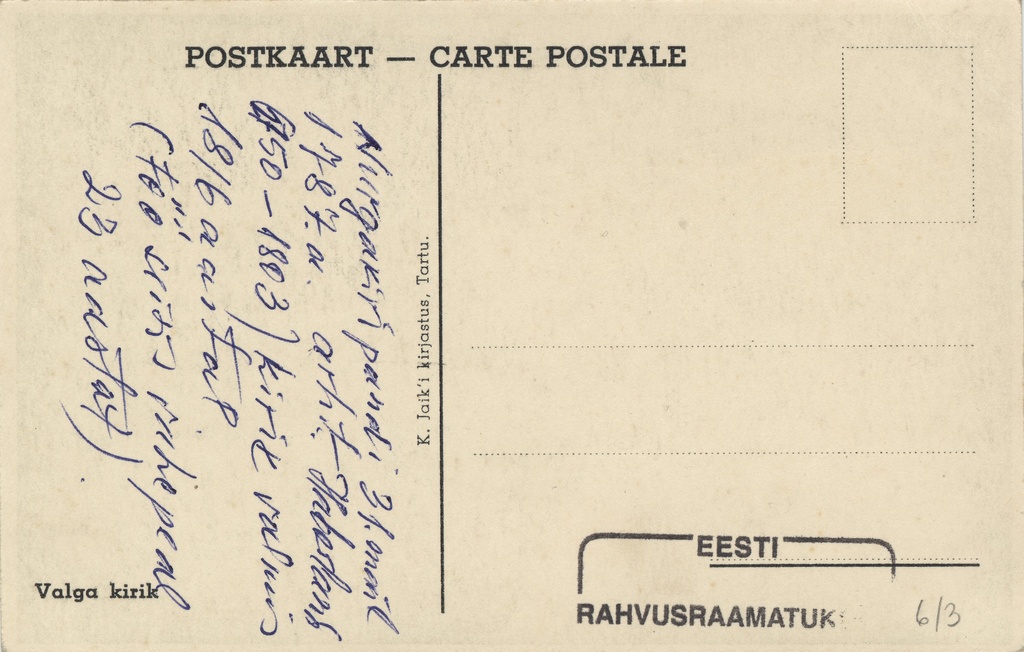 POSTKAART — CARTE POSTALE
Nurgakivi pandi 31. mail
1787. a. arhit. Haberland
(1750 – 1803) kirik valmis
1816 aastal
(töö seisis vahepeal
23 aastat).
K. Jaik'i kirjastus, Tartu.
Valga kirik
EESTI
RAHVUSRAAMATUK
6/3